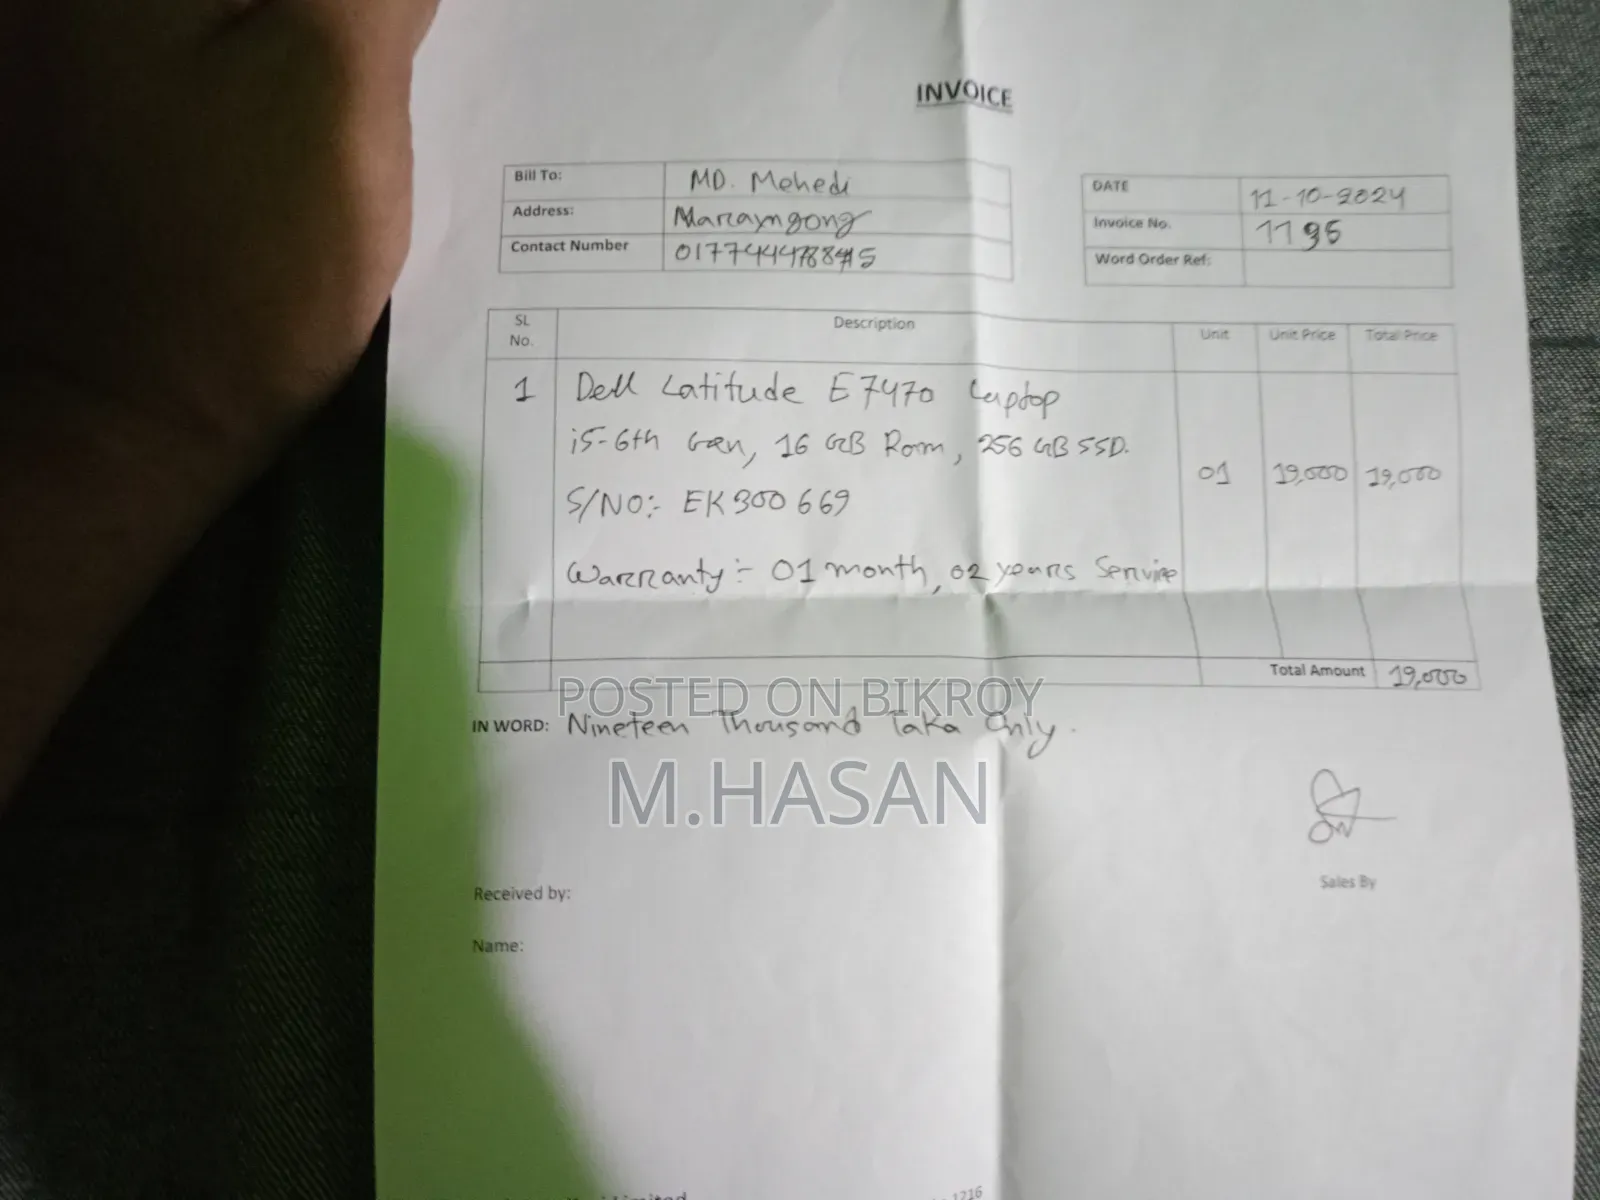 INVOICE
Bill To: MD. Mehedi
Address: Narayngong
Contact Number
DATE 11-10-2024
Invoice No. 1195
Word Order Ref:
SL No. Description Unit Unit Price Total Price
1 Dell Latitude E7470 Laptop
i5-6th Gen, 16 GB Ram, 256 GB SSD.
01 19,000 19,000
S/NO:- EK300669
Warranty:- 01 month, 02 years Service
Total Amount 19,000
POSTED ON BIKROY
IN WORD: Nineteen Thousand Taka Only.
M.HASAN
Sales By
Received by:
Name:
Limited 1216